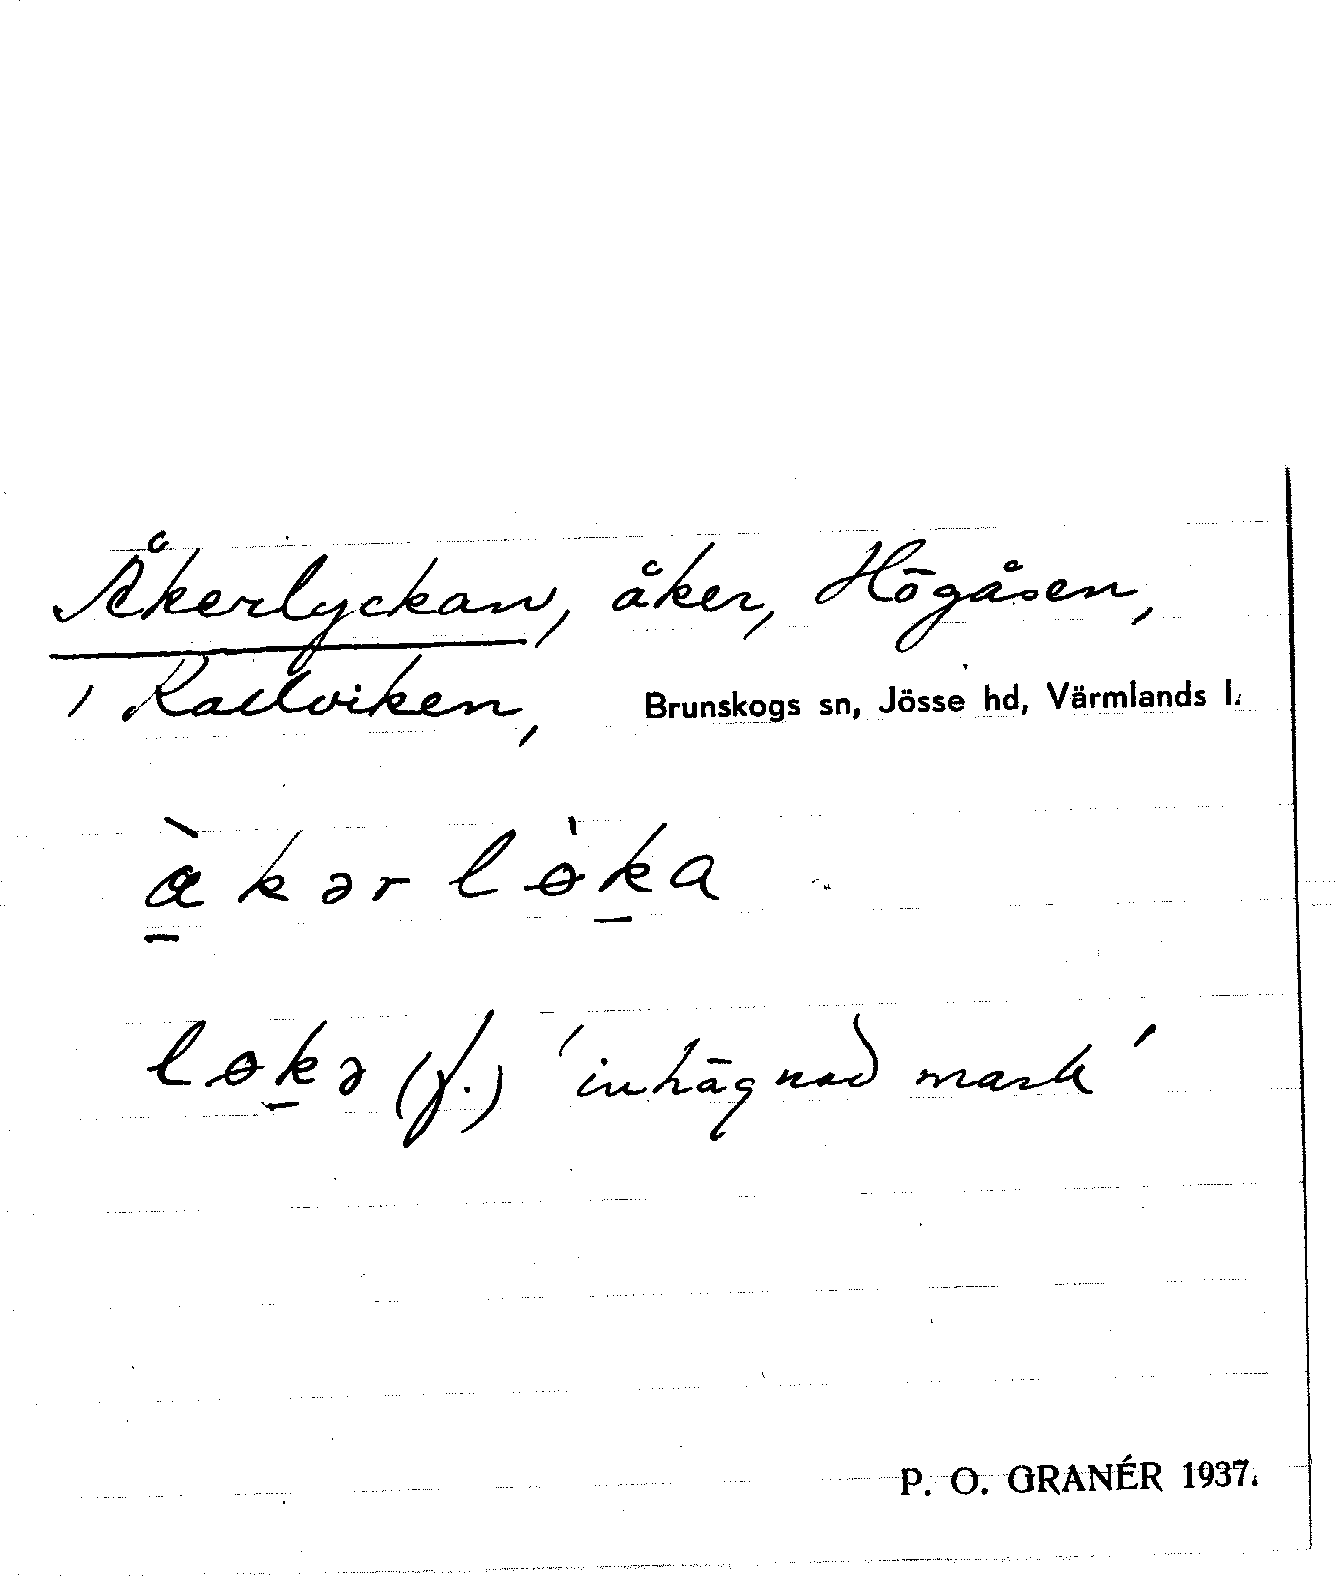 Åkerlyckan, åker, Högåsen,
i Rallviken, Brunskogs sn, Jösse hd, Värmlands l.
à̱kərlɵ̀ḵa
lɵḵə (f.) 'inhägnad mark'
P. O. GRANÉR 1937.